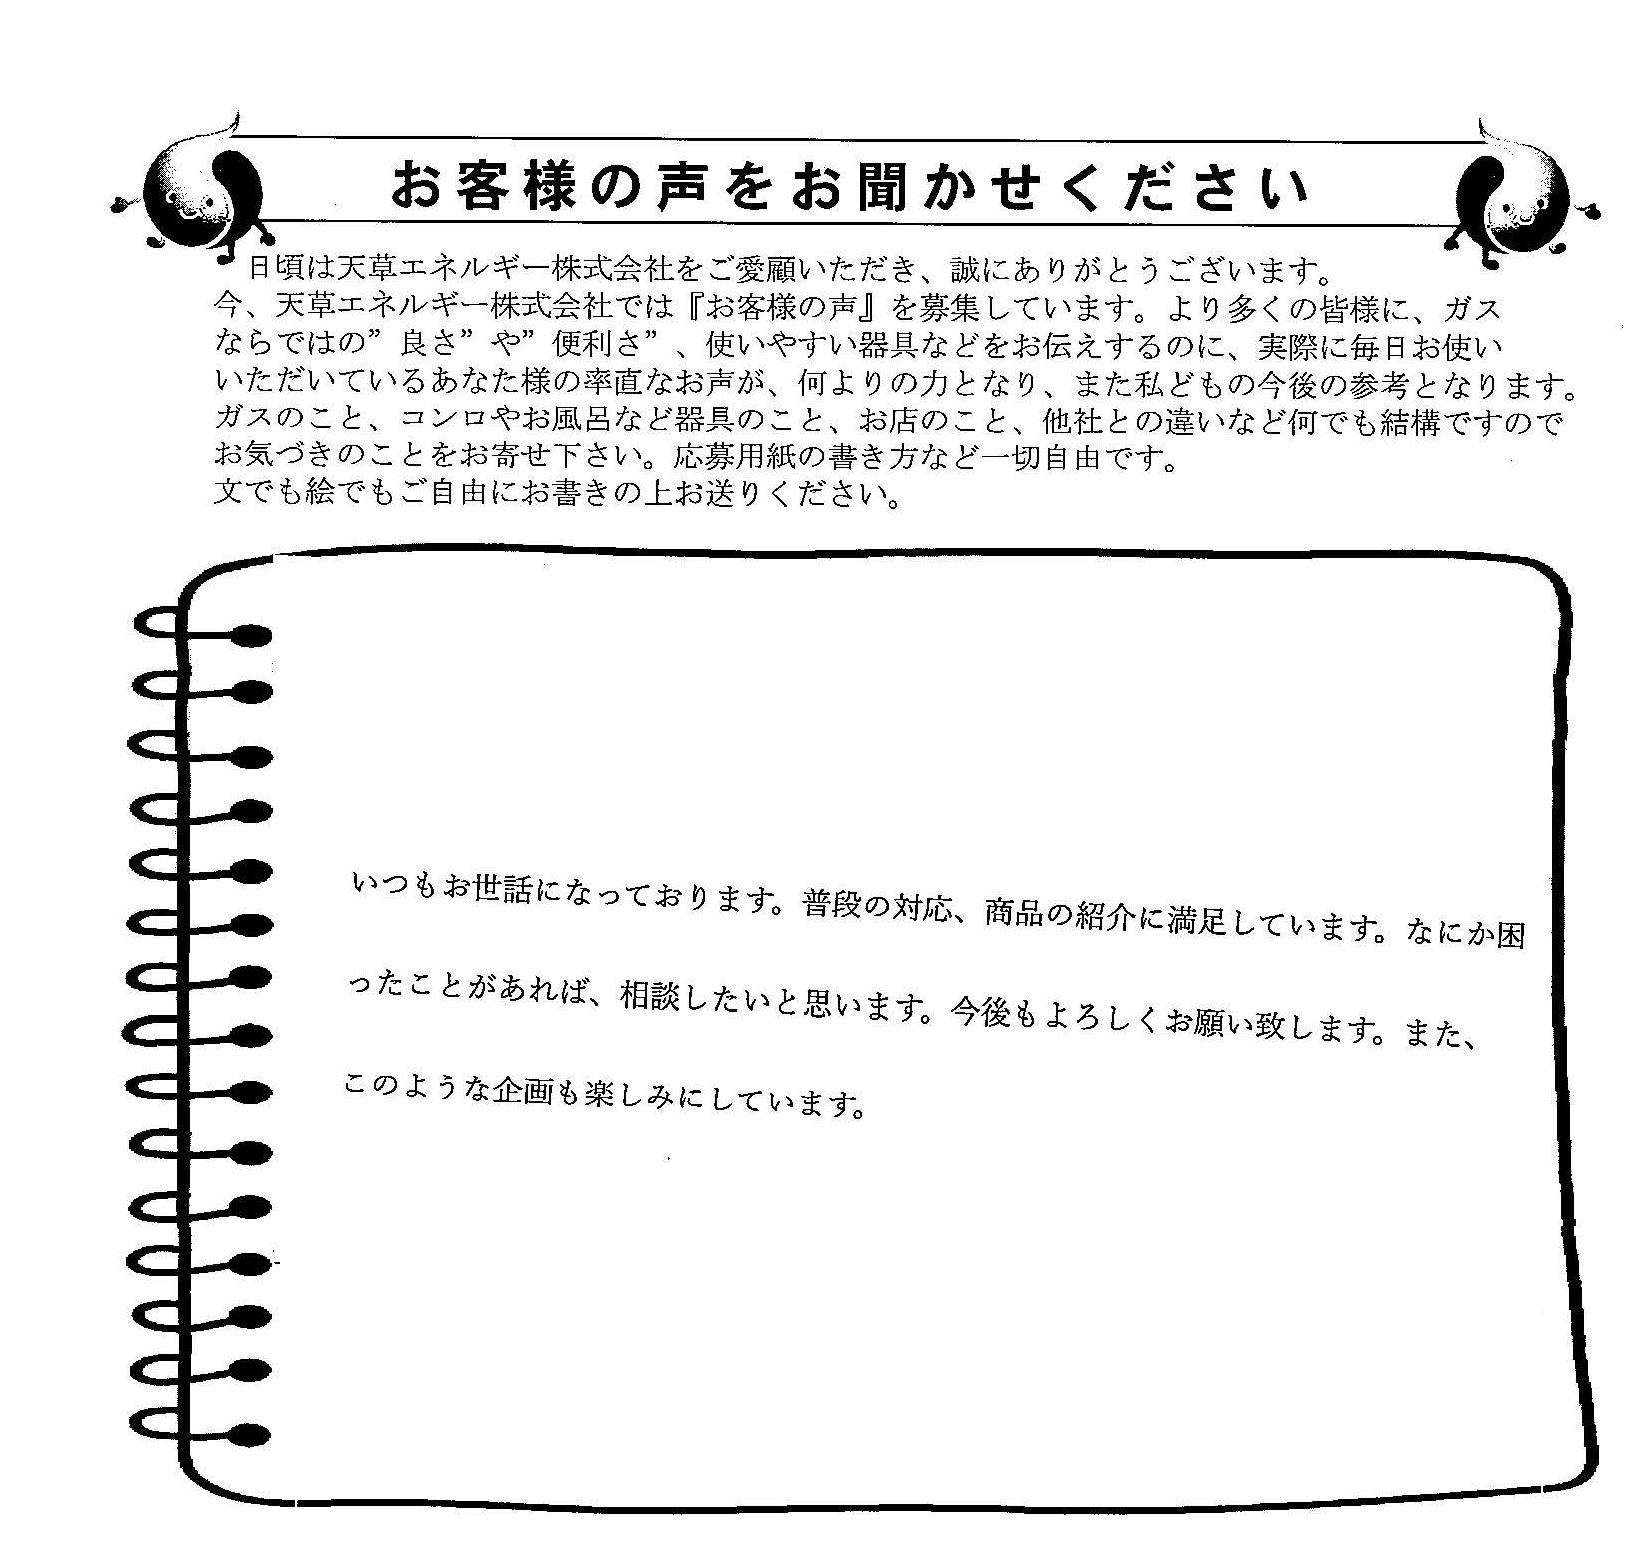 お客様の声をお聞かせください
日頃は天草エネルギー株式会社をご愛顧いただき、誠にありがとうございます。
今、天草エネルギー株式会社では『お客様の声』を募集しています。より多くの皆様に、ガス
ならではの”良さ”や”便利さ”、使いやすい器具などをお伝えするのに、実際に毎日お使い
いただいているあなた様の率直なお声が、何よりの力となり、また私どもの今後の参考となります。
ガスのこと、コンロやお風呂など器具のこと、お店のこと、他社との違いなど何でも結構ですので
お気づきのことをお寄せ下さい。応募用紙の書き方など一切自由です。
文でも絵でもご自由にお書きの上お送りください。
いつもお世話になっております。普段の対応、商品の紹介に満足しています。なにか困
ったことがあれば、相談したいと思います。今後もよろしくお願い致します。また、
このような企画も楽しみにしています。